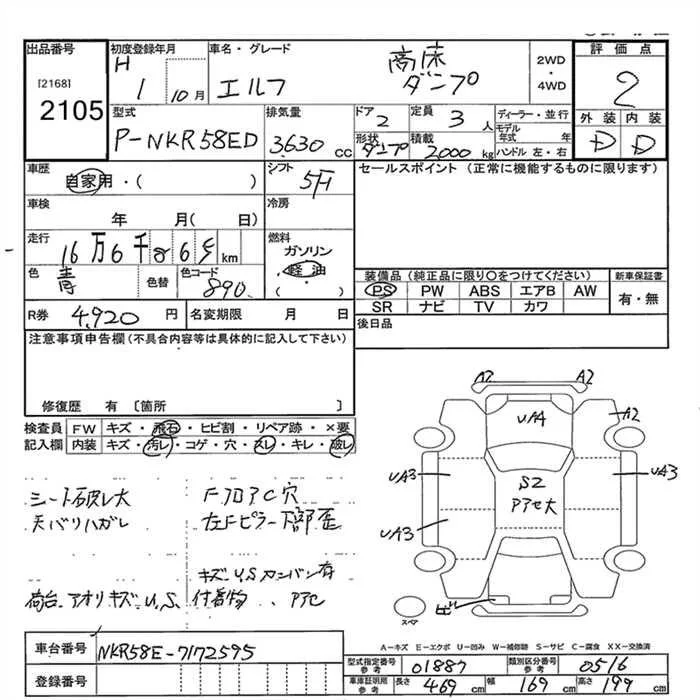 出品番号
[2168]
2105
初度登録年月
H 1 10月
車名・グレード
エルフ 高床 ダンプ
2WD・4WD
評価点
2
型式
P-NKR58ED
排気量
3630 CC
ドア
2
定員
3 人
形状
ダンプ
積載
2000 kg
ディーラー・並行
モデル年式 年
ハンドル 左・右
外装 内装
D D
車歴
自家用・( )
シフト
5F
セールスポイント(正常に機能するものに限ります)
車検
年 月( 日)
冷房
走行
16万6千 km
燃料
ガソリン
軽油
( )
色
青
色替
色コード
890
装備品(純正品に限り○をつけてください)
PS PW ABS エアB AW
SR ナビ TV カワ
新車保証書
有・無
R券 4,920 円
名変期限 月 日
後日品
注意事項申告欄(不具合内容等は具体的に記入して下さい)
修復歴 有 〔箇所 〕
検査員記入欄
FW キズ・飛石・ヒビ割・リペア跡・×要
内装 キズ・汚レ・コゲ・穴・スレ・キレ・破レ
シート破レ大
天バリハガレ
FフロアC穴
左Fピラー下部歪
荷台アオリキズ、U,S
キズ、U,Sカンバン有
付着物、アアセ
A2 A2
UA4
A2
UA3
S2
アアセ大
UA3
UA3
ヒビ
スペア
A-キズ E-エクボ U-凹み W-補修跡 S-サビ C-腐食 XX-交換済
車台番号
NKR58E-7172595
登録番号
型式指定番号 参考 01887
類別区分番号 参考 0516
車庫証明用 参考 長さ 469 cm 幅 169 cm 高さ 199 cm